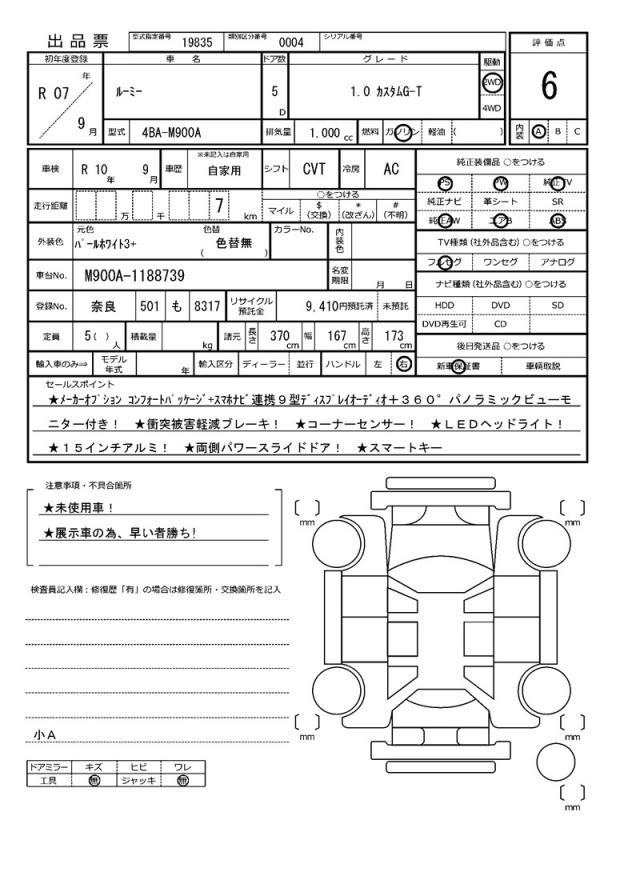 出品票 型式指定番号 19835 類別区分番号 0004 シリアル番号
評価点
初年度登録 車名 ドア数 グレード 駆動
R 07 年 9 月 ルーミー 5 D 1.0 カスタムG-T 2WD 4WD 6
型式 4BA-M900A 排気量 1.000 cc 燃料 ガソリン 軽油 ( ) 内装 A B C
車検 R 10 年 9 月 車歴 ※未記入は自家用 自家用 シフト CVT 冷房 AC
走行距離 万 千 7 km
○をつける
マイル $(交換) *(改ざん) #(不明)
外装色 元色 パールホワイト3+ 色替 ( 色替無 ) カラーNo. 内装色
車台No. M900A-1188739 名変期限 月 日
登録No. 奈良 501 も 8317 リサイクル預託金 9,410円預託済 未預託
定員 5( ) 人 積載量 kg 諸元 長さ 370 cm 幅 167 cm 高さ 173 cm
輸入車のみ⇒ モデル年式 年 輸入区分 ディーラー 並行 ハンドル 左 右
純正装備品 ○をつける
PS PW 純正TV
純正ナビ 革シート SR
純正AW エアB ABS
TV種類 (社外品含む) ○をつける
フルセグ ワンセグ アナログ
ナビ種類 (社外品含む) ○をつける
HDD DVD SD
DVD再生可 CD
後日発送品 ○をつける
新車保証書 車輌取説
セールスポイント
★メーカーオプション コンフォートパッケージ+スマホナビ連携9型ディスプレイオーディオ+360°パノラミックビューモ
ニター付き! ★衝突被害軽減ブレーキ! ★コーナーセンサー! ★LEDヘッドライト!
★15インチアルミ! ★両側パワースライドドア! ★スマートキー
注意事項・不具合箇所
★未使用車!
★展示車の為、早い者勝ち!
検査員記入欄:修復歴「有」の場合は修復箇所・交換箇所を記入
小A
ドアミラー キズ ヒビ ワレ
工具 無 ジャッキ 無
[ ] mm
[ ] mm
[ ] mm
[ ] mm
[ ] mm